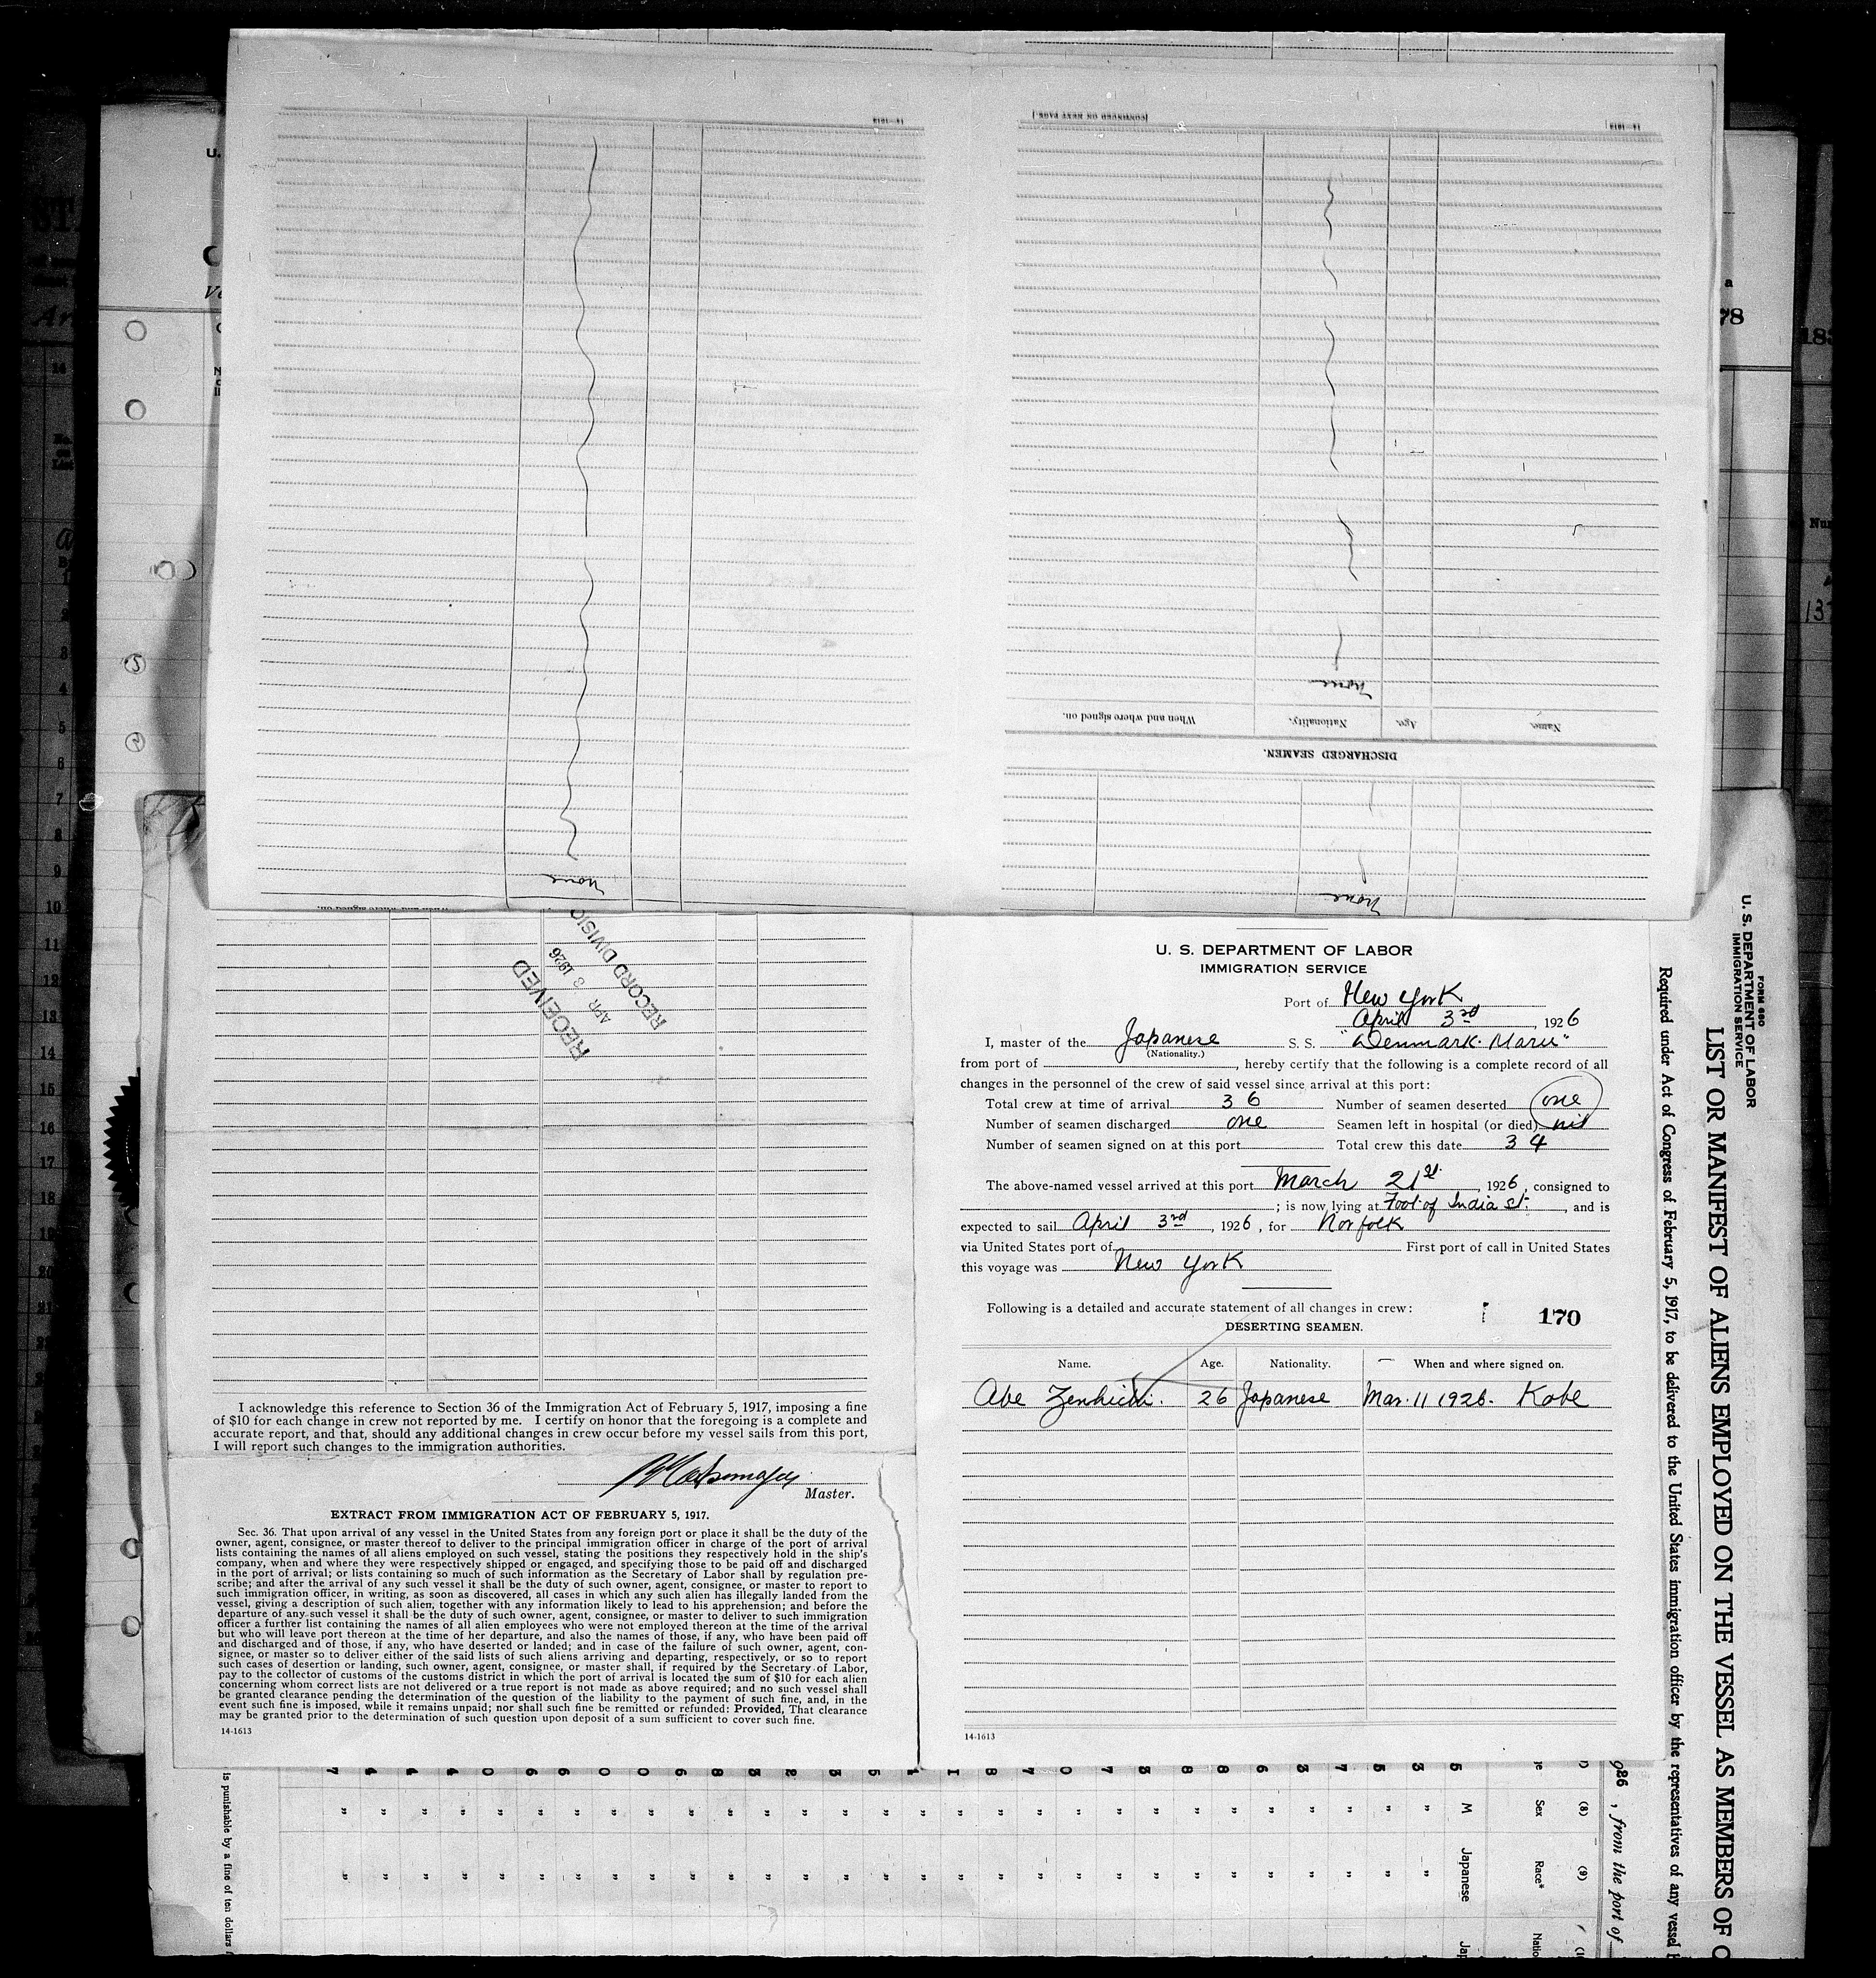 14—1613
[CONTINUED ON NEXT PAGE.]
14—1613
none
When and where signed on.
Nationality.
Age.
Name.
DISCHARGED SEAMEN.
none
none
RECEIVED
APR 3 1926
RECORD DIVISIO
I acknowledge this reference to Section 36 of the Immigration Act of February 5, 1917, imposing a fine
of $10 for each change in crew not reported by me. I certify on honor that the foregoing is a complete and
accurate report, and that, should any additional changes in crew occur before my vessel sails from this port,
I will report such changes to the immigration authorities.
Master.
EXTRACT FROM IMMIGRATION ACT OF FEBRUARY 5, 1917.
Sec. 36. That upon arrival of any vessel in the United States from any foreign port or place it shall be the duty of the
owner, agent, consignee, or master thereof to deliver to the principal immigration officer in charge of the port of arrival
lists containing the names of all aliens employed on such vessel, stating the positions they respectively hold in the ship's
company, when and where they were respectively shipped or engaged, and specifying those to be paid off and discharged
in the port of arrival; or lists containing so much of such information as the Secretary of Labor shall by regulation pre-
scribe; and after the arrival of any such vessel it shall be the duty of such owner, agent, consignee, or master to report to
such immigration officer, in writing, as soon as discovered, all cases in which any such alien has illegally landed from the
vessel, giving a description of such alien, together with any information likely to lead to his apprehension; and before the
departure of any such vessel it shall be the duty of such owner, agent, consignee, or master to deliver to such immigration
officer a further list containing the names of all alien employees who were not employed thereon at the time of the arrival
but who will leave port thereon at the time of her departure, and also the names of those, if any, who have been paid off
and discharged and of those, if any, who have deserted or landed; and in case of the failure of such owner, agent, con-
signee, or master so to deliver either of the said lists of such aliens arriving and departing, respectively, or so to report
such cases of desertion or landing, such owner, agent, consignee, or master shall, if required by the Secretary of Labor,
pay to the collector of customs of the customs district in which the port of arrival is located the sum of $10 for each alien
concerning whom correct lists are not delivered or a true report is not made as above required; and no such vessel shall
be granted clearance pending the determination of the question of the liability to the payment of such fine, and, in the
event such fine is imposed, while it remains unpaid; nor shall such fine be remitted or refunded: Provided, That clearance
may be granted prior to the determination of such question upon deposit of a sum sufficient to cover such fine.
14-1613
U. S. DEPARTMENT OF LABOR
IMMIGRATION SERVICE
Port of New York
April 3rd, 1926
I, master of the Japanese S. S. "Denmark. Maru"
(Nationality.)
from port of , hereby certify that the following is a complete record of all
changes in the personnel of the crew of said vessel since arrival at this port:
Total crew at time of arrival 36 Number of seamen deserted one
Number of seamen discharged one Seamen left in hospital (or died) nil
Number of seamen signed on at this port Total crew this date 34
The above-named vessel arrived at this port March 21st, 1926, consigned to
; is now lying at Foot of India St., and is
expected to sail April 3rd, 1926, for Norfolk
via United States port of First port of call in United States
this voyage was New York
Following is a detailed and accurate statement of all changes in crew:
170
DESERTING SEAMEN.
Name. Age. Nationality. When and where signed on.
Abe Zenkichi. 26 Japanese Mar. 11 1926. Kobe
14-1613
FORM 680
U. S. DEPARTMENT OF LABOR
IMMIGRATION SERVICE
LIST OR MANIFEST OF ALIENS EMPLOYED ON THE VESSEL AS MEMBERS OF C
Required under Act of Congress of February 5, 1917, to be delivered to the United States immigration officer by the representatives of any vessel
, from the port of
(8) (9)
Sex Race*
M Japanese
is punishable by a fine of ten dollars